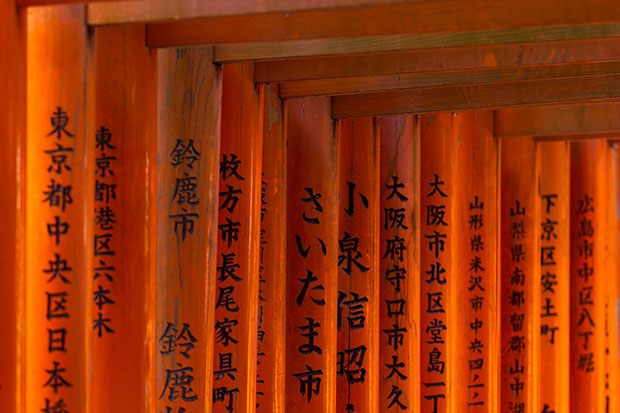 広島市中区八丁堀
下京区安土町
山梨県南都留郡山中
山形県米沢市中央四ー二ー
大阪市北区堂島一丁
大阪府守口市大久
小泉信昭
さいたま市
枚方市長尾家具町
鈴鹿市
鈴鹿
東京都港区六本木
東京都中央区日本橋